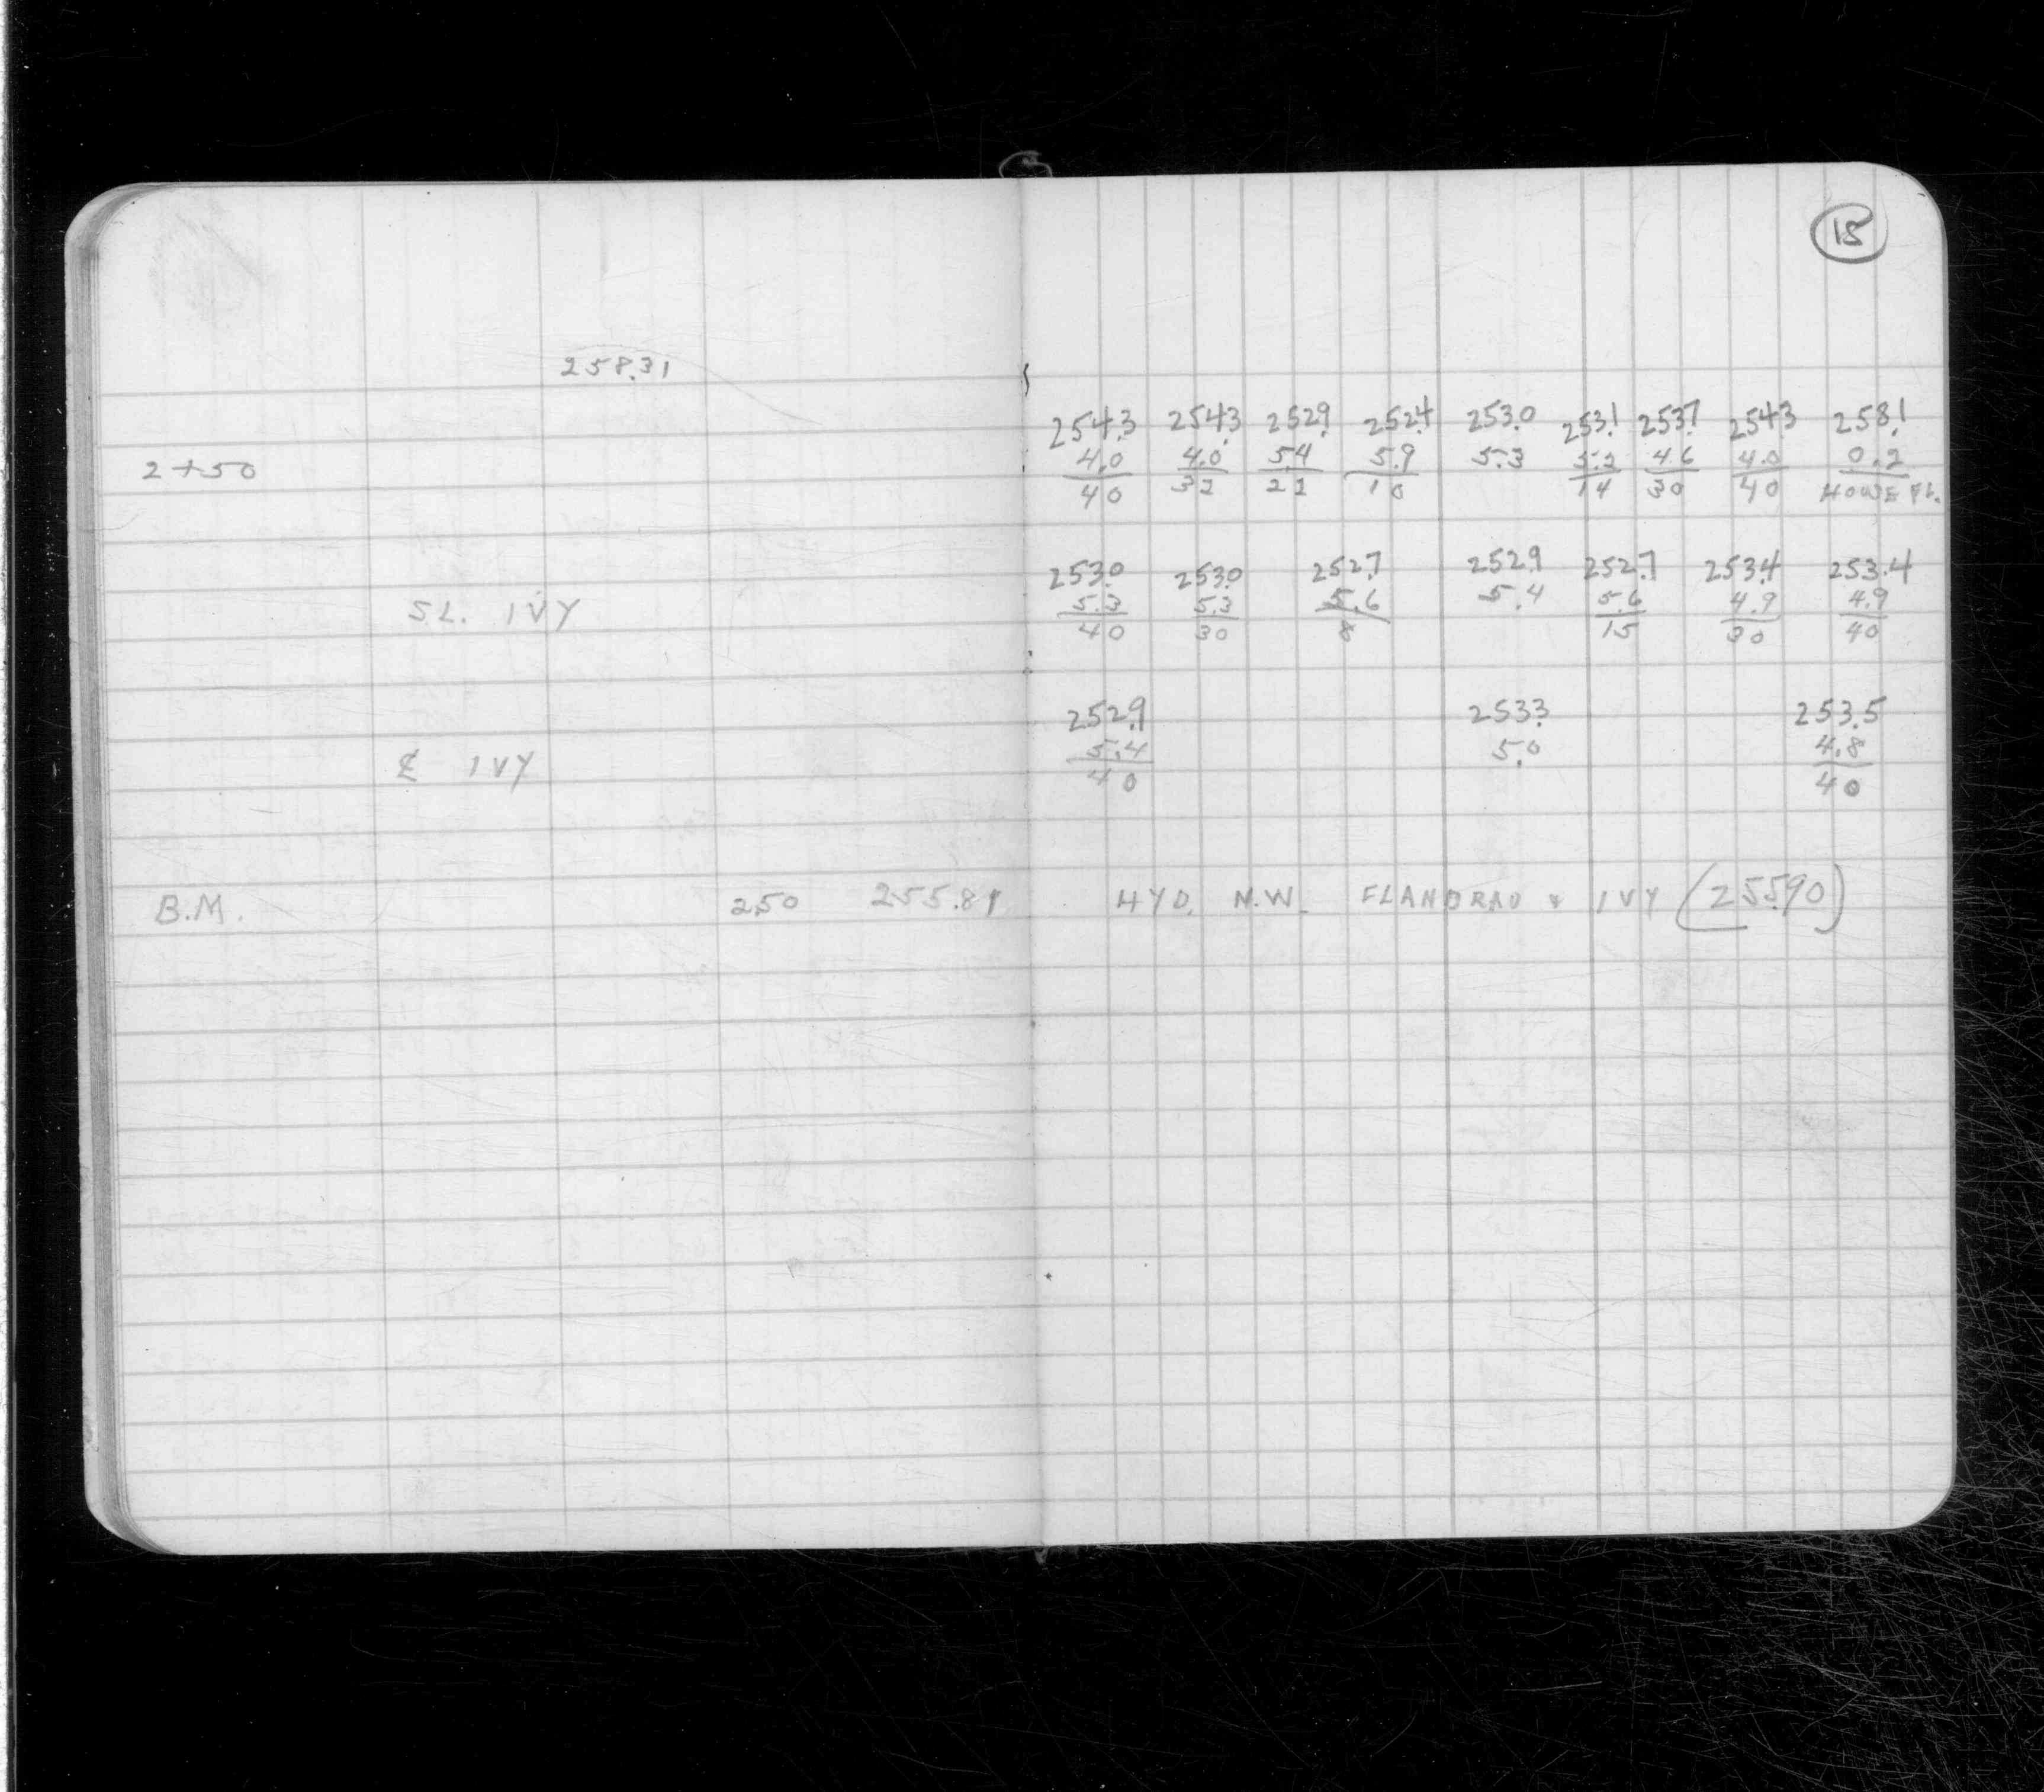 18
258.31
254.3 254.3 252.9 252.4 253.0 253.1 253.7 254.3 258.1
2+50 4.0 4.0 5.4 5.9 5.3 5.2 4.6 4.0 0.2
40 32 22 10 14 30 40 HOUSE FL.
253.0 253.0 252.7 252.9 252.7 253.4 253.4
S.L. IVY 5.3 5.3 5.6 5.4 5.6 4.9 4.9
40 30 8 15 30 40
252.9 253.3 253.5
℄ IVY 5.4 5.0 4.8
40 40
B.M. 2.50 255.81 HYD. N.W. FLANDRAU & IVY (255.90)